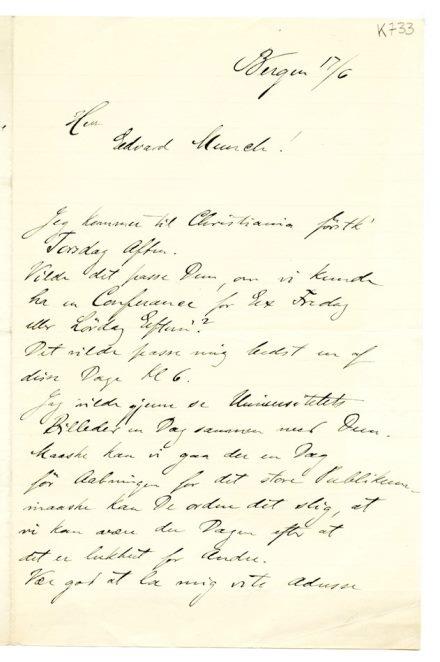 K733
Bergen 17/6
Herr
Edvard Munch!
Jeg kommer til Christiania förstk
Torsdag Aften.
Vilde det passe Dem, om vi kunde
ha en Conferance for Ex Fredag
eller Lördag Efterm?
Det vilde passe mig bedst en af
disse Dage Kl 6.
Jeg vilde gjerne se Universitetets
Billeder en Dag sammen med Dem.
Maaske kan vi gaa der en Dag
för Aabningen for det store Publikum–
maaske kan De ordne det slig, at
vi kan være der Dagen efter at
det er lukket for Andre.
Vær god at la mig vite Adresse